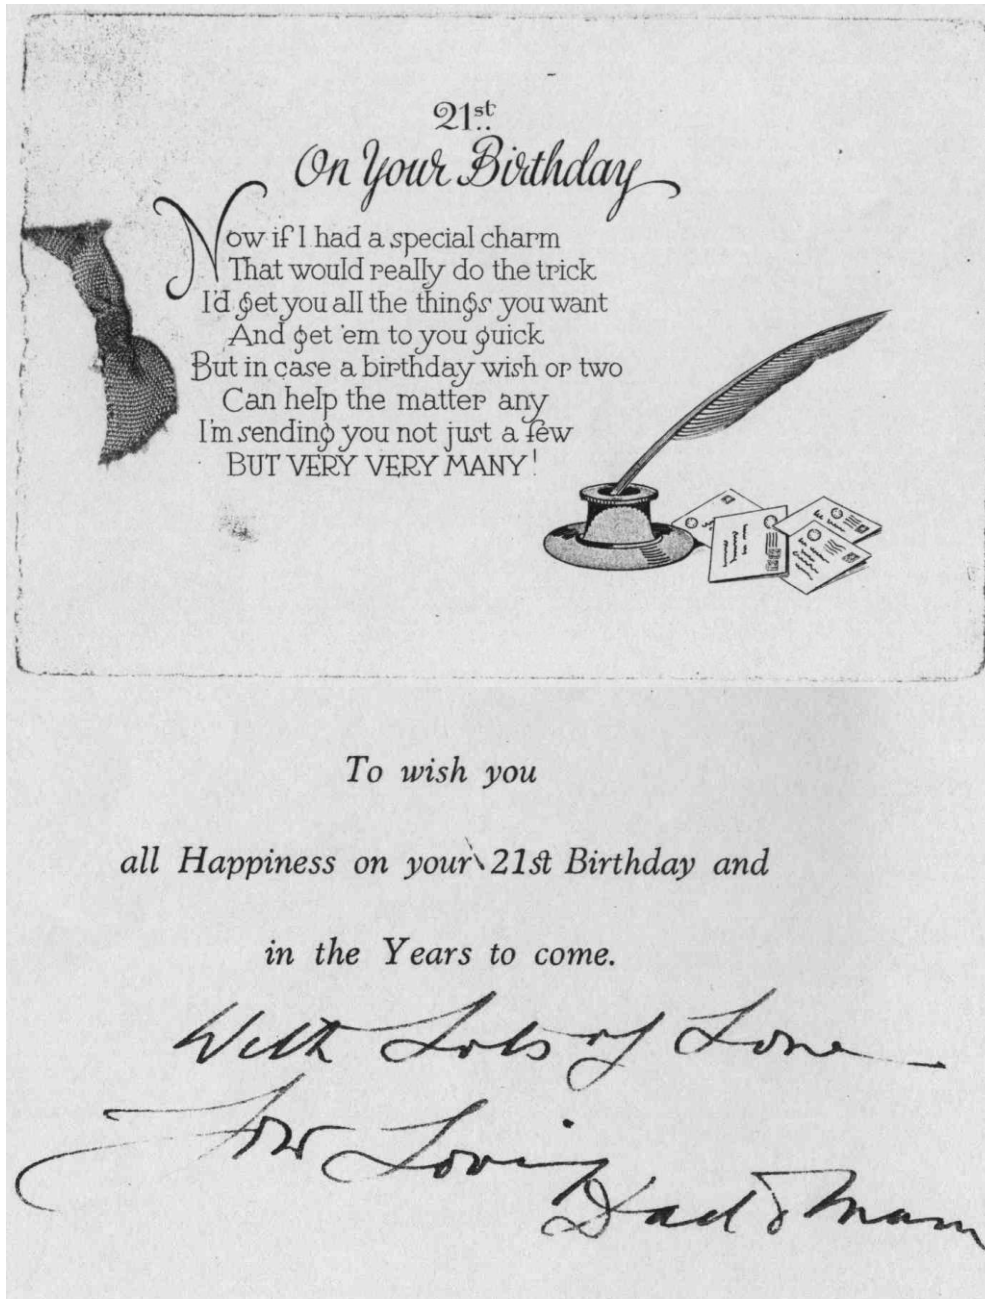 21st
On Your Birthday
Now if I had a special charm
That would really do the trick
I'd get you all the things you want
And get 'em to you quick
But in case a birthday wish or two
Can help the matter any
I'm sending you not just a few
BUT VERY VERY MANY!
To wish you
all Happiness on your 21st Birthday and
in the Years to come.
With Lots of Love
Your Loving
Dad & Mam